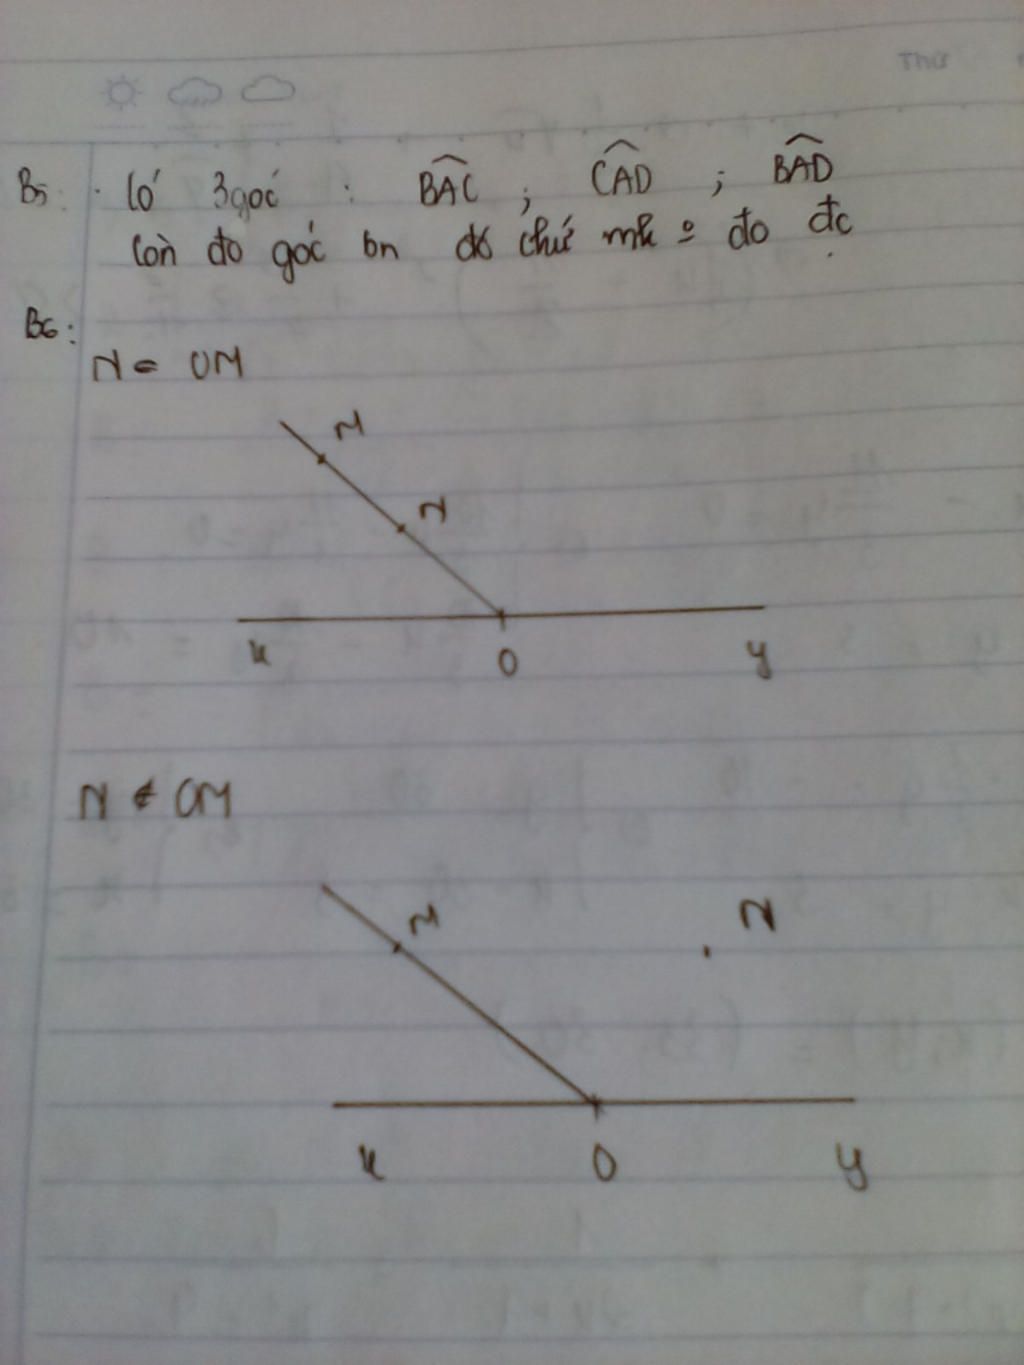 Thứ
B5: Có 3góc : BAC ; CAD ; BAD
Còn đo góc bn đó chứ mk o đo đc
B6:
N = OM
M
N
x O y
N ∉ OM
M N
x O y